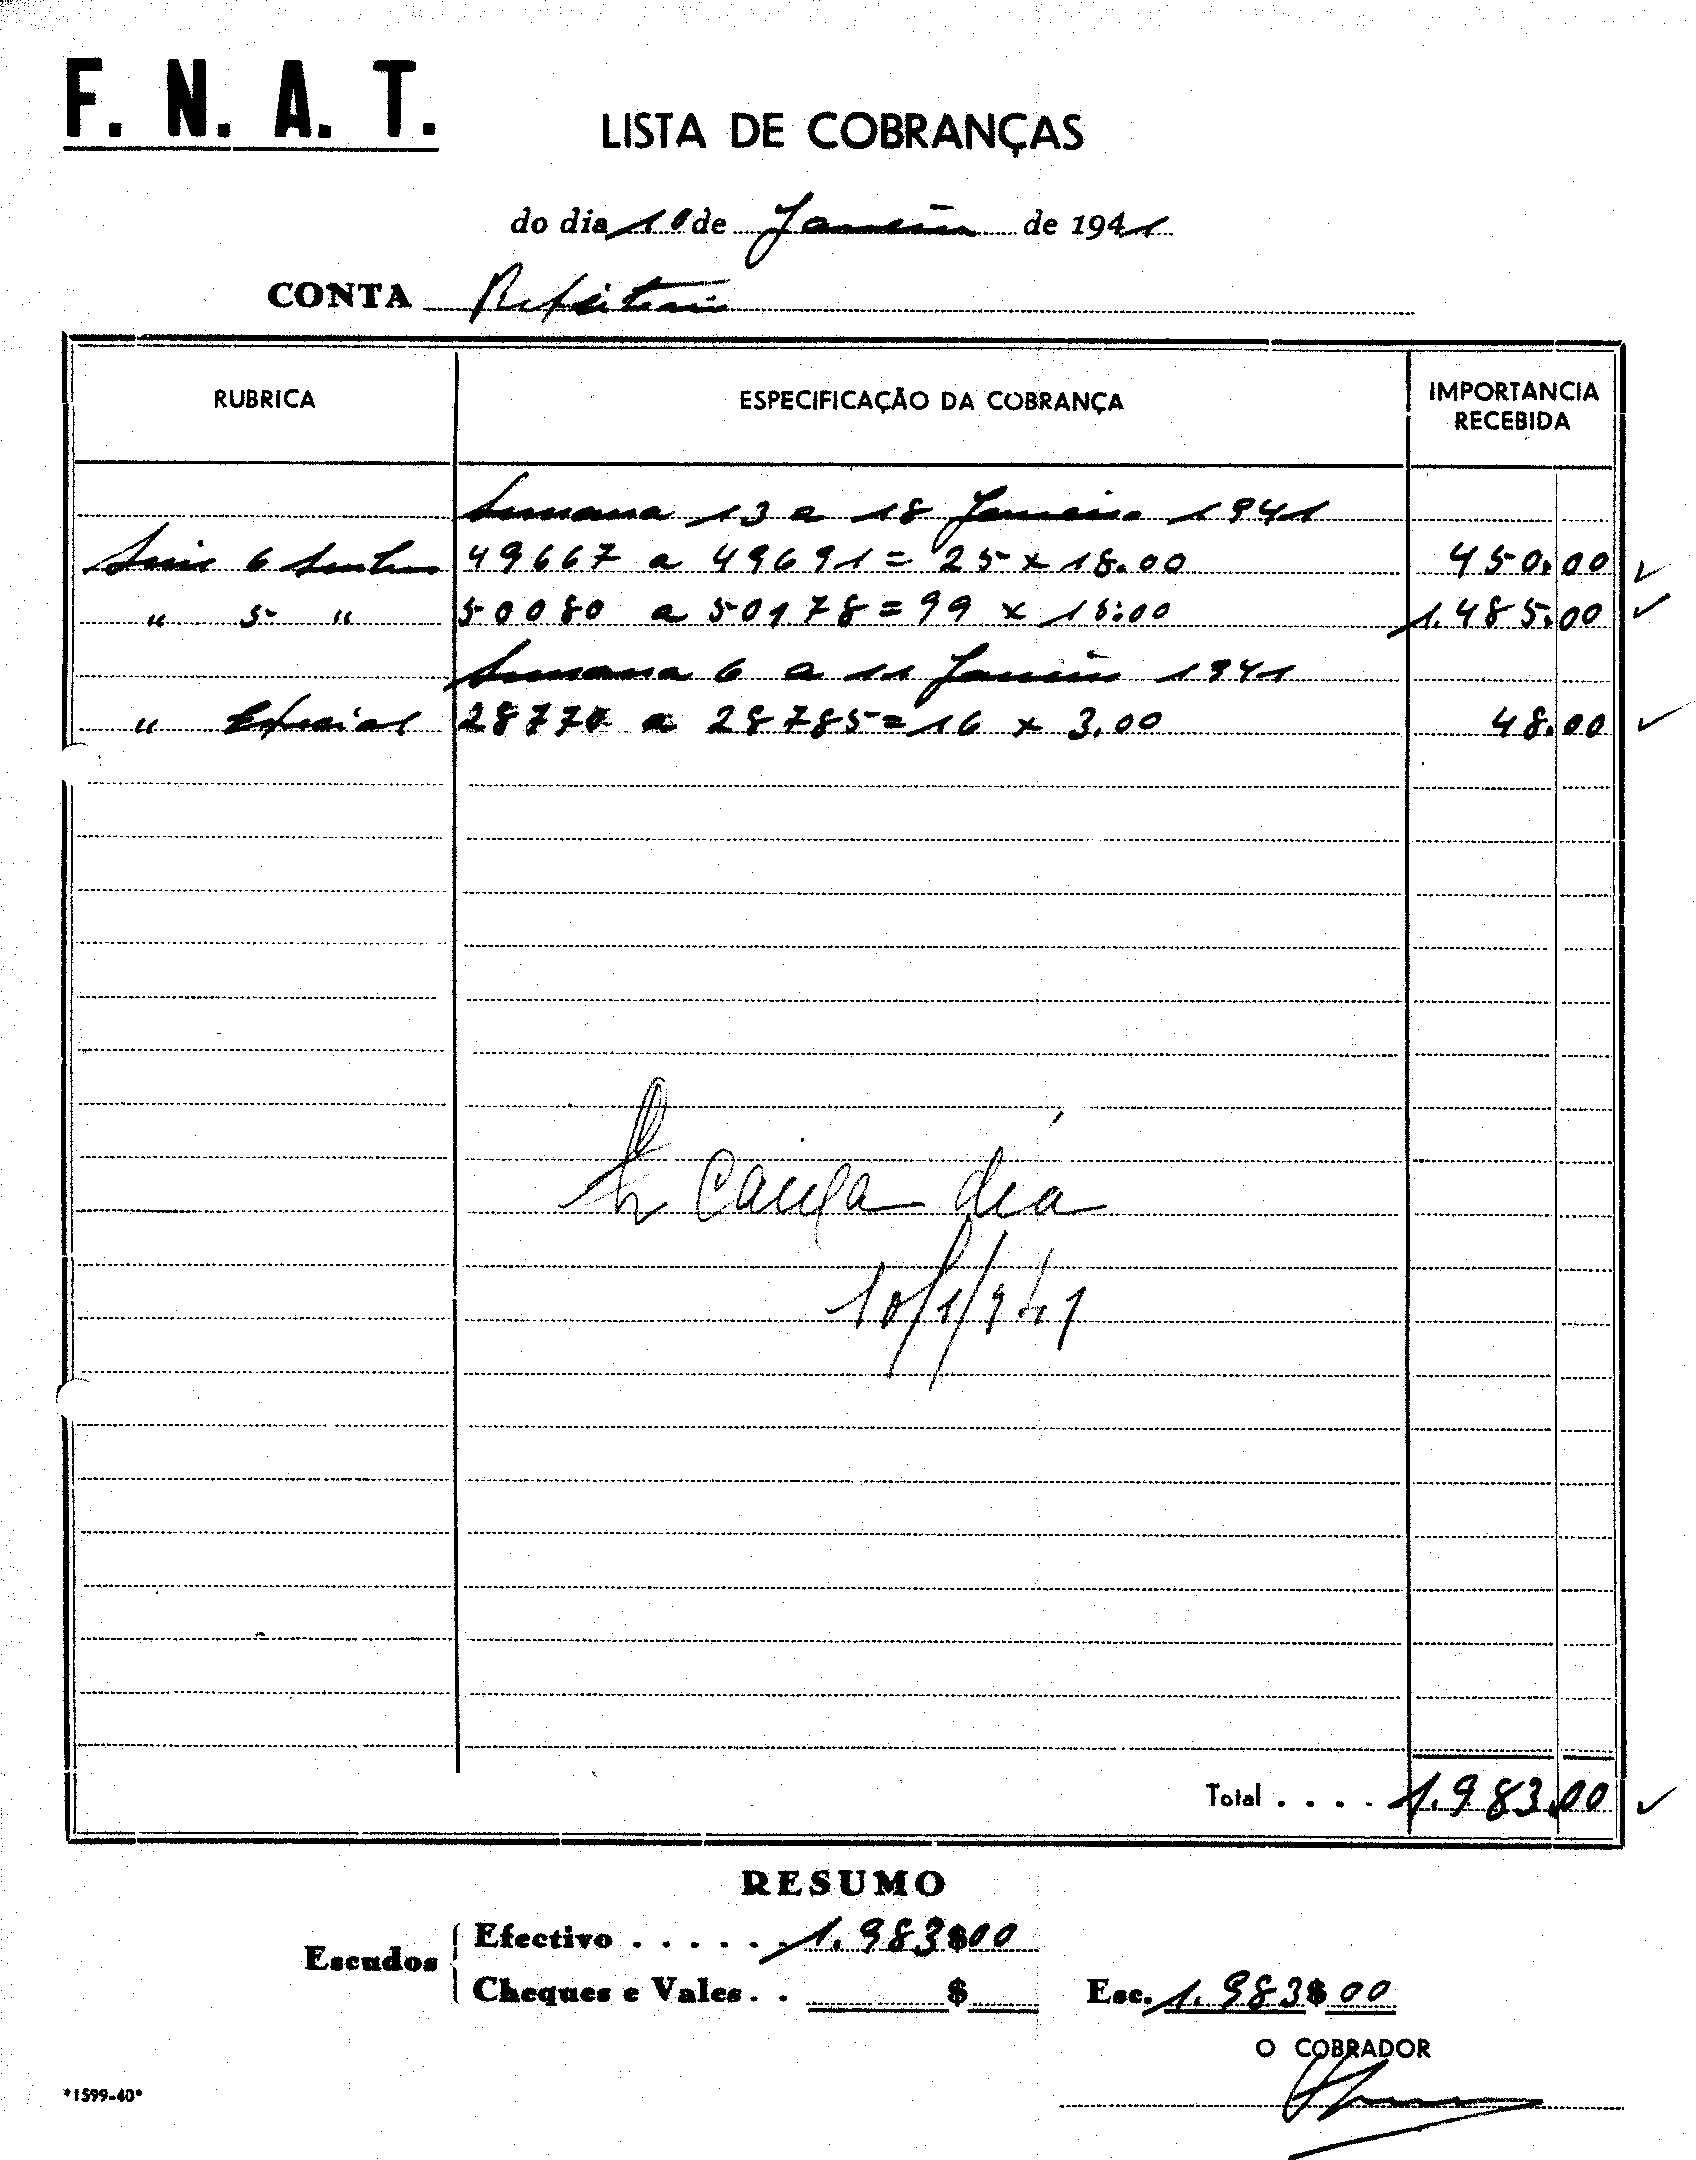 F. N. A. T.
LISTA DE COBRANÇAS
do dia 10 de Janeiro de 1941
CONTA Refeitorio
RUBRICA ESPECIFICAÇÃO DA COBRANÇA IMPORTANCIA RECEBIDA
Semana 13 a 18 Janeiro 1941
6 49667 a 49691 = 25 x 18.00 450.00
" 5 " 50080 a 50178 = 99 x 15.00 1.485.00
Semana 6 a 11 Janeiro 1941
" Especial 28770 a 28785 = 16 x 3.00 48.00
Caixa dia
10/1/941
Total . . . . 1.983.00
RESUMO
Escudos Efectivo . . . . . . 1.983$00
Cheques e Vales . . $ Esc. 1.983$00
O COBRADOR
*1599-40*